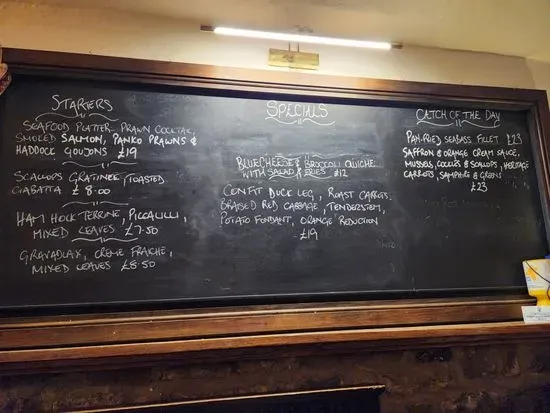 STARTERS
SEAFOOD PLATTER - PRAWN COCKTAIL,
SMOKED SALMON, PANKO PRAWNS &
HADDOCK GOUJONS £19
SCALLOPS GRATINEE, TOASTED
CIABATTA £8.00
HAM HOCK TERRINE, PICCALILLI,
MIXED LEAVES £7.50
GRAVADLAX, CREME FRAICHE,
MIXED LEAVES £8.50
SPECIALS
BLUE CHEESE & BROCCOLI QUICHE
WITH SALAD & FRIES £12
CONFIT DUCK LEG, ROAST CARROTS,
BRAISED RED CABBAGE, TENDERSTEM,
POTATO FONDANT, ORANGE REDUCTION
£19
CATCH OF THE DAY
PAN-FRIED SEABASS FILLET £23
SAFFRON & ORANGE CREAM SAUCE,
MUSSELS, COCKLES & SCALLOPS, HERITAGE
CARROTS, SAMPHIRE & GREENS
£23